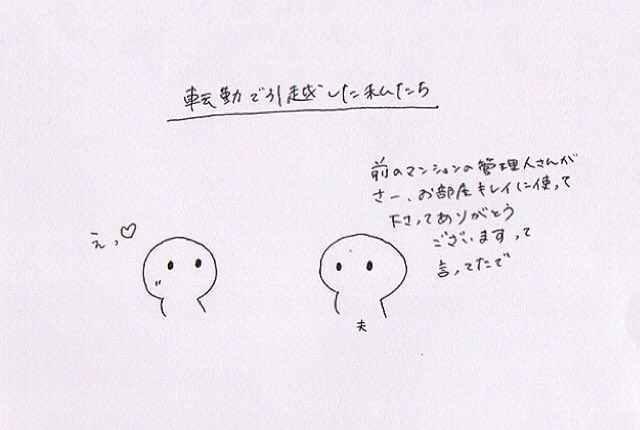 転勤で引越した私たち
前のマンションの管理人さんが
さー、お部屋キレイに使って
下さってありがとう
ございますって
言ってたで
えっ♡
夫